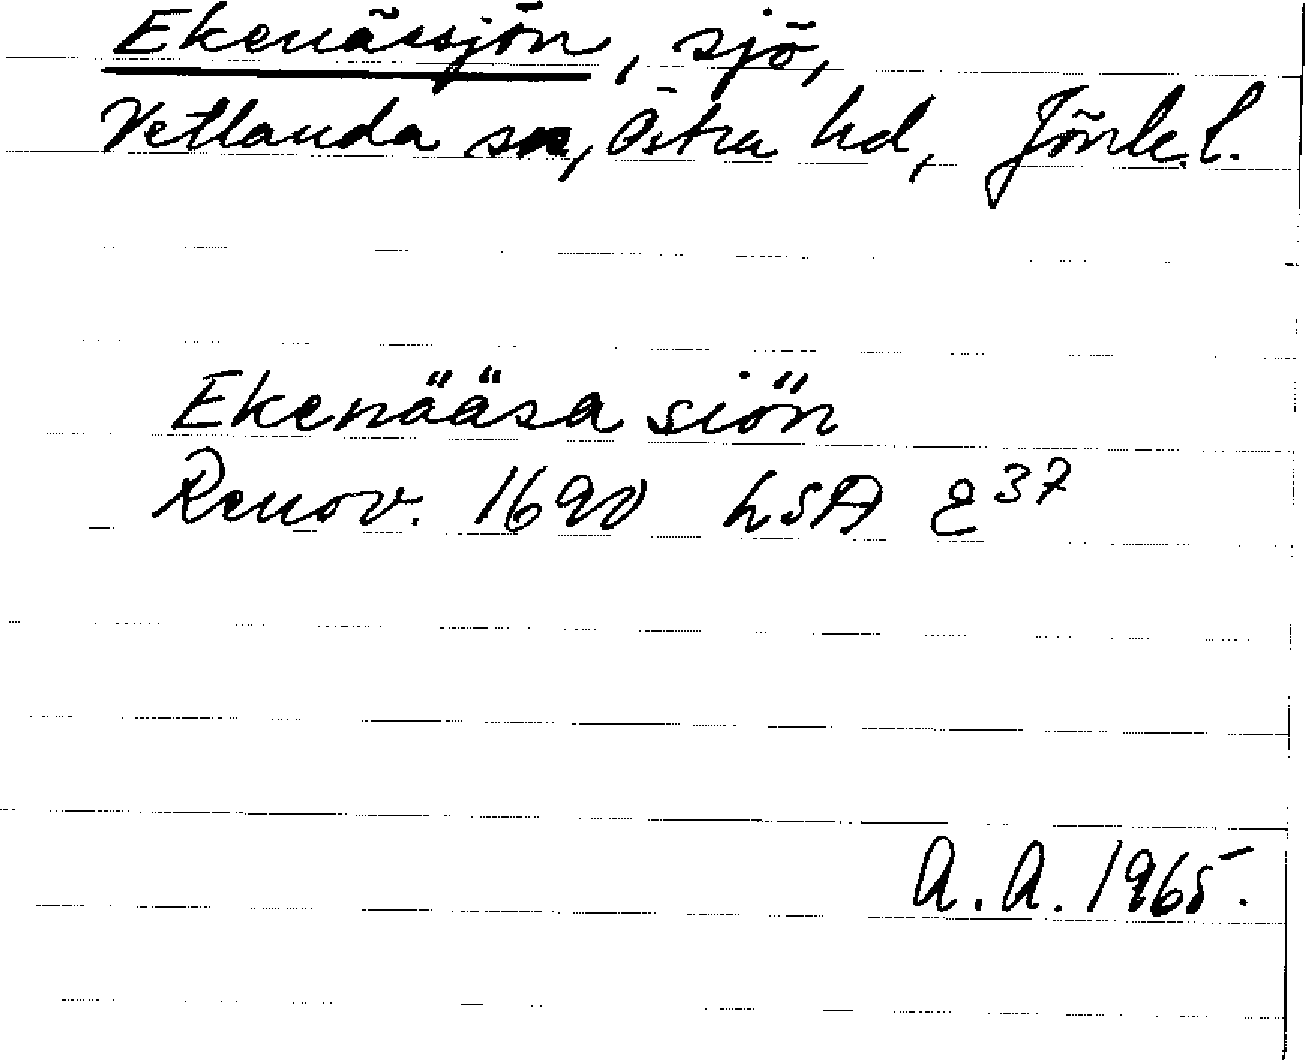 Ekenässjön, sjö,
Vetlanda sn, Östra hd, Jönk. l.
Ekenääsa siön
Renov. 1690 LSA E 37
A. A. 1965.